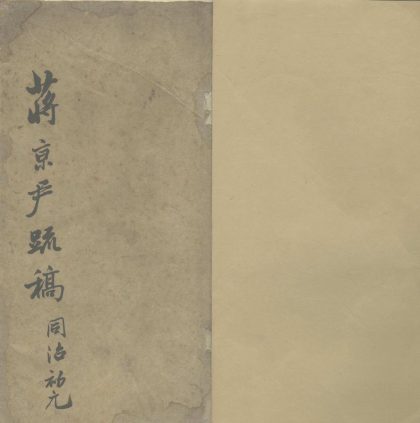 蒋京尹疏稿同治初元